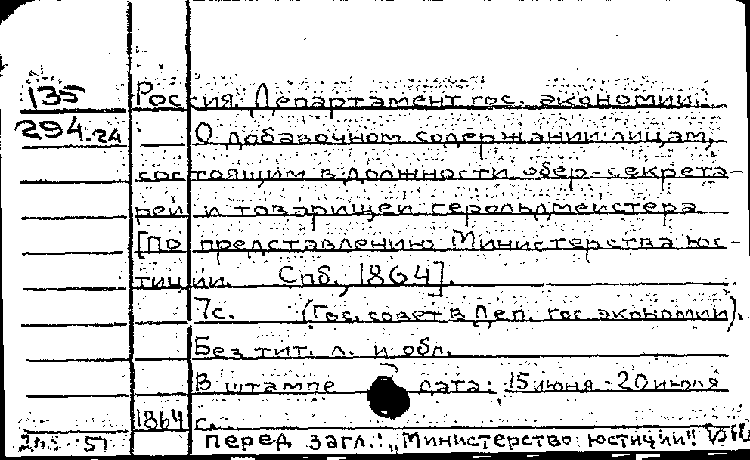 135 Россия. Департамент гос. экономии.
294.24 О добавочном содержании лицам,
состоящим в должности обер-секрета-
рей и товарищей герольдмейстера
[По представлению Министерства юс-
тиции. Спб., 1864].
7с. (Гос. совет в Деп. гос экономии).
Без тит. л. и обл.
В штампе дата: 15 июня - 20 июля
1864 с.
перед загл.: „Министерство юстиции"